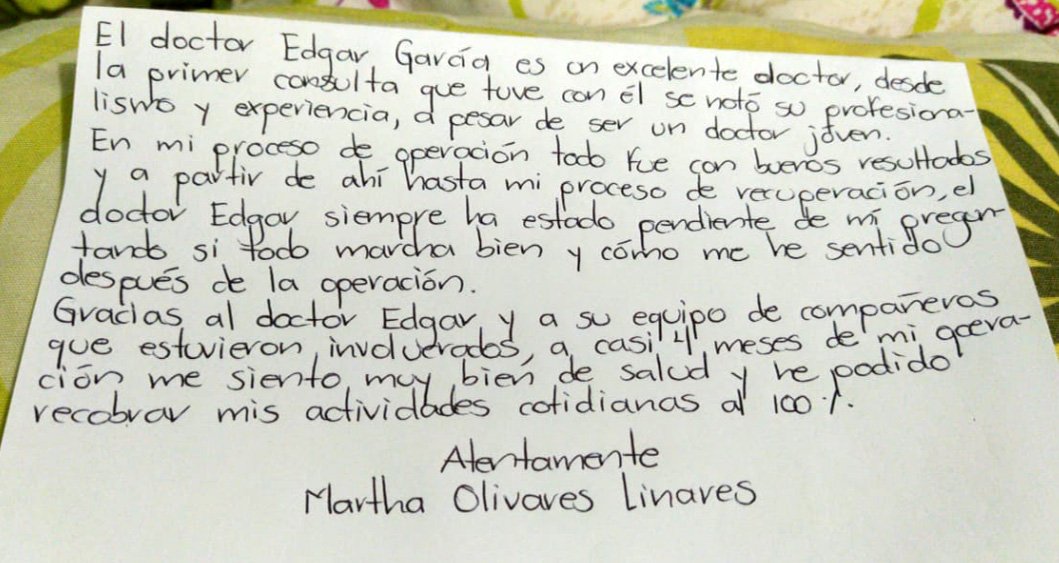 El doctor Edgar García es un excelente doctor, desde
la primer consulta que tuve con él se notó su profesiona-
lismo y experiencia, a pesar de ser un doctor joven.
En mi proceso de operación todo fue con buenos resultados
y a partir de ahí hasta mi proceso de recuperación, el
doctor Edgar siempre ha estado pendiente de mí pregun-
tando si todo marcha bien y cómo me he sentido
después de la operación.
Gracias al doctor Edgar y a su equipo de compañeros
que estuvieron involucrados, a casi 4 meses de mi opera-
ción me siento muy bien de salud y he podido
recobrar mis actividades cotidianas al 100%.
Atentamente
Martha Olivares Linares